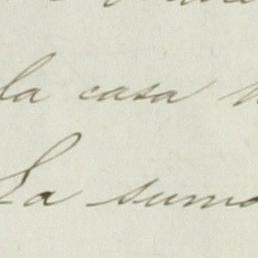 la casa
La suma